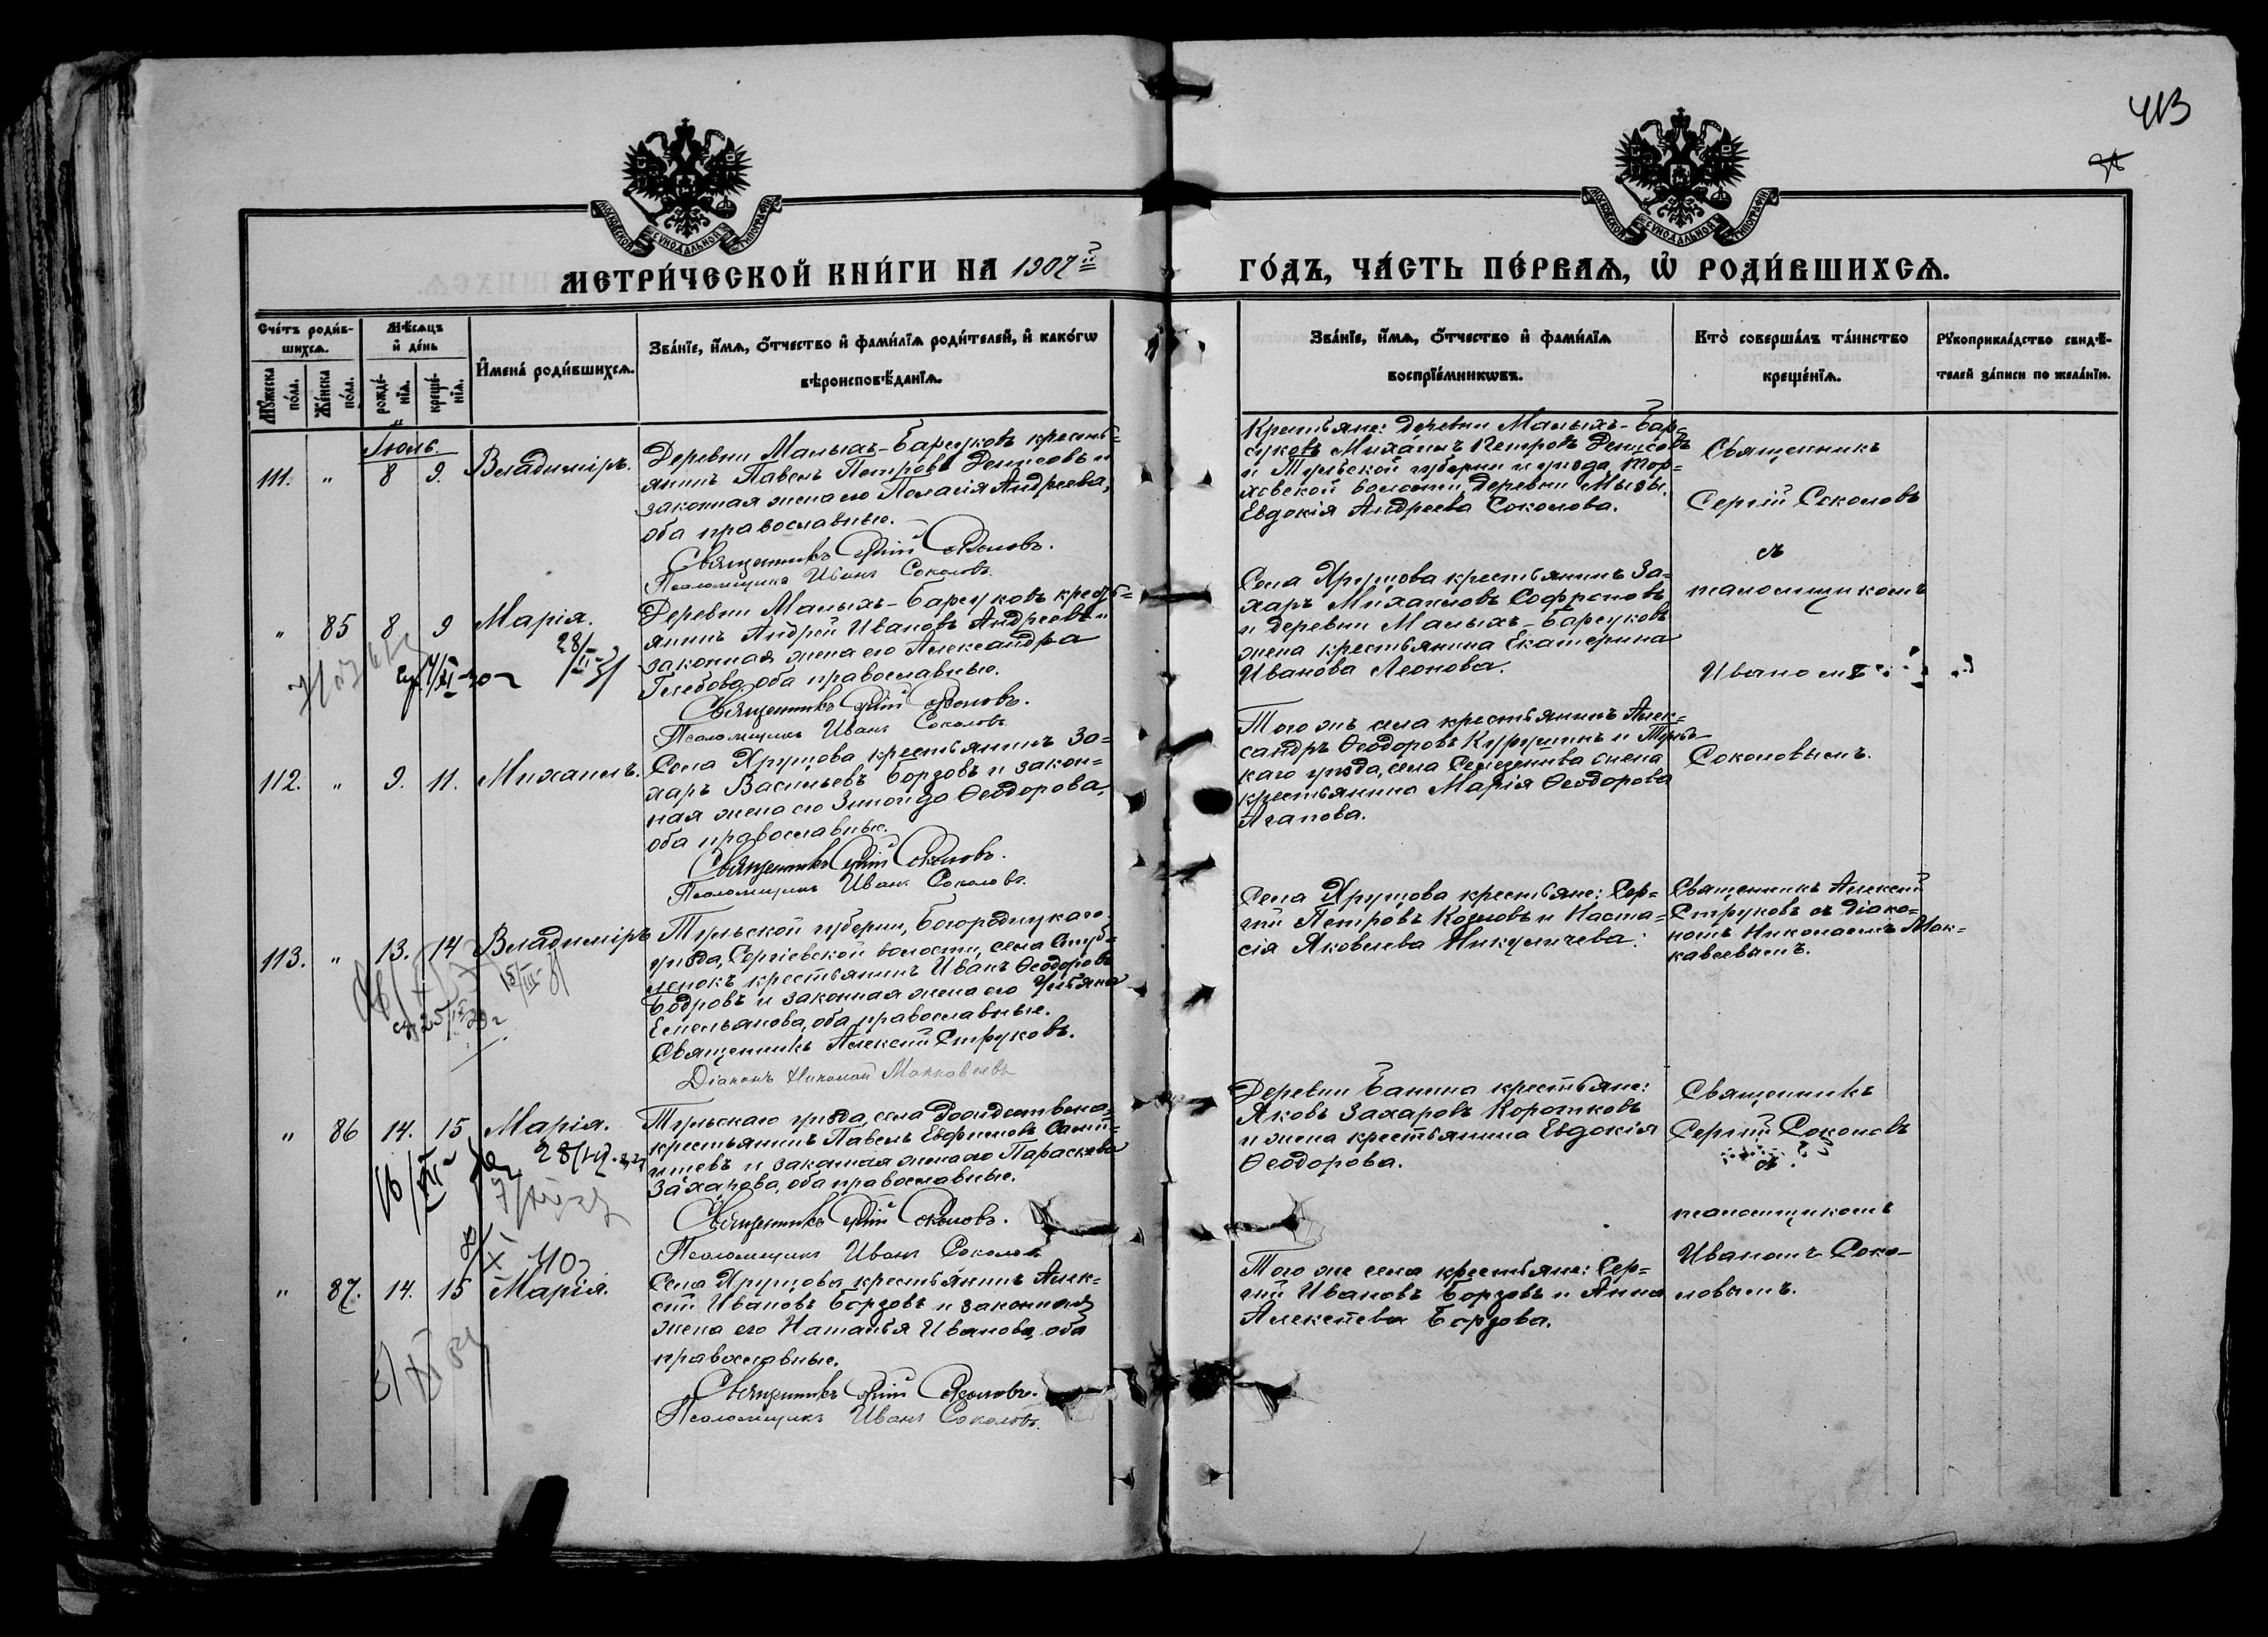 413
МОСКОВСКОЙ СУНОДАЛЬНОЙ ТИПОГРАФІИ
МОСКОВСКОЙ СУНОДАЛЬНОЙ ТИПОГРАФІИ
МЕТРИ́ЧЕСКОЙ КНИ́ГИ НА 1907й
ГО́ДЪ, ЧА́СТЬ ПЕ́РВАѦ, Ѽ РОДИ́ВШИХСѦ.
Сче́тъ роди́в-
шихсѧ.
Мѣ́сѧцъ
и҆ де́нь
И҆мена̀ роди́вшихсѧ.
Зва́нїе, и҆́мѧ, ѻ҆́тчество и҆ фами́лїѧ роди́телей, и҆ како́гѡ
вѣроисповѣ́данїѧ.
Мꙋ́жеска
по́ла.
Же́нска
по́ла.
рожде́-
нїѧ.
креще́-
нїѧ.
Зва́нїе, и҆́мѧ, ѻ҆́тчество и҆ фами́лїѧ
воспрїе́мникѡвъ.
Кто̀ соверша́лъ та́инство
креще́нїѧ.
Рꙋкоприкла́дство свидѣ́-
телей за́писи по жела́нїю.
Іюль.
111. " 8 9. Владиміръ.
Деревни Малыхъ-Барсуковъ кресть=
янинъ Павелъ Петровъ Денисовъ и
законная жена его Пелагія Андреева,
оба православные.
Священникъ Сергій Соколовъ.
Псаломщикъ Иванъ Соколовъ.
Крестьяне: деревни Малыхъ-Бар-
суковъ Михаилъ Петровъ Денисовъ
и Тульской губерніи и уѣзда, Тор=
ховской волости, деревни Мызы,
Евдокія Андреева Соколова.
Священникъ
Сергій Соколовъ
съ
псаломщикомъ
Иваномъ
Соколовымъ.
" 85 8 9 Марія.
Деревни Малыхъ-Барсуковъ кресть=
янинъ Андрей Ивановъ Андреевъ и
законная жена его Александра
Глебова, оба православные.
Священникъ Сергій Соколовъ.
Псаломщикъ Иванъ Соколовъ
Села Хрущова крестьянинъ За=
харъ Михаиловъ Софроновъ
и деревни Малыхъ-Барсуковъ
жена крестьянина Екатерина
Иванова Леонова.
112. " 9. 11. Михаилъ.
Села Хрущова крестьянинъ За=
харъ Васильевъ Борзовъ и закон=
ная жена его Зинаида Ѳеодорова,
оба православные.
Священникъ Сергій Соколовъ.
Псаломщикъ Иванъ Соколовъ.
Того жъ села крестьянинъ Алек=
сандръ Ѳеодоровъ и Туль-
каго уѣзда, села жена
крестьянина Марія Ѳеодорова
Агапова.
113. " 13. 14 Владиміръ
Тульской губерніи, Богородицкаго
уѣзда, Сергіевской волости, села
крестьянинъ Иванъ Ѳеодоровъ
Бодровъ и законная жена его Ульяна
Емельянова, оба православные.
Священникъ Алексій Струковъ.
Діаконъ Николай Маккавеевъ
Села Хрущова крестьяне: Сер=
гій Петровъ Козловъ и Наста=
сія Яковлева Никуличева.
Священникъ Алексій
Струковъ съ діако=
номъ Николаемъ Мак=
кавеевымъ.
" 86 14. 15 Марія.
Тульскаго уѣзда, села Рождествена
крестьянинъ Павелъ Евфимовъ
и законная жена его Параскева
Захарова, оба православные.
Священникъ Сергій Соколовъ.
Псаломщикъ Иванъ Соколовъ
Деревни Банина крестьяне:
Яковъ Захаровъ Коротковъ
и жена крестьянина Евдокія
Ѳеодорова.
Священникъ
Сергій Соколовъ
съ
псаломщикомъ
Иваномъ Соко-
ловымъ.
" 87. 14. 15 Марія.
Села Хрущова крестьянинъ Алек=
сій Ивановъ Борзовъ и законная
жена его Наталья Иванова, оба
православные.
Священникъ Сергій Соколовъ.
Псаломщикъ Иванъ Соколовъ.
Того же села крестьяне: Сер=
гій Ивановъ Борзовъ и Анна
Алексѣева Борзова.